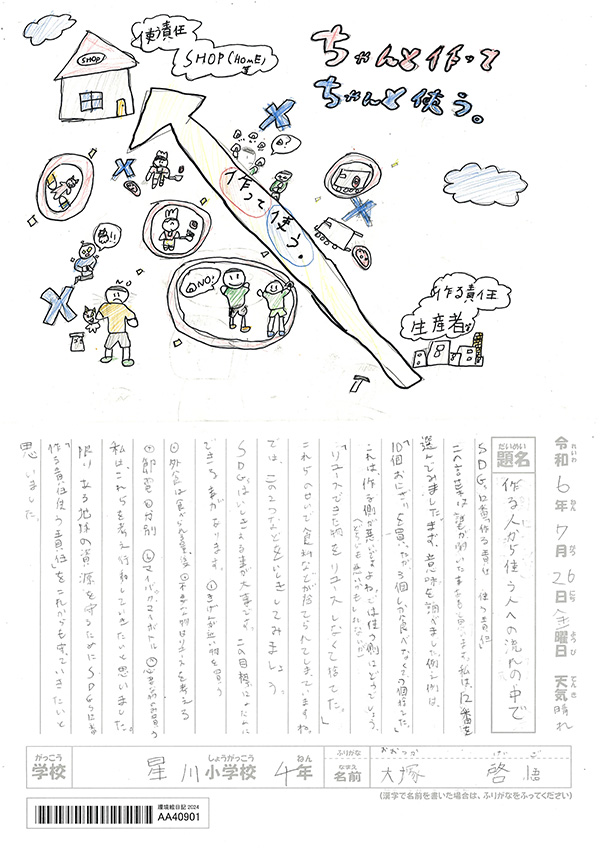 ちゃんと作って
ちゃんと使う。
使う責任
SHOP(HOME)等
SHOP
作って
使う。
?
!!
NO
NO!
作る責任
生産者
令和6年7月26日金曜日 天気晴れ
れいわ
ねん
がつ
にち
ようび
てんき
だいめい
題名
作る人から使う人への流れの中で
SDGs12番作る責任 使う責任
選んでみました。まず、意味を調べました。例え例は、
「10個おにぎりを買ったが3個しか食べなくて7個捨てた。」
これは、作る側が悪いでよね。では使う側はどうでしょう。
(どっちも悪いかもしれないが)
「リユースできた物をリユースしなくて捨てた。」
これらのせいで食料などが捨てられてしまっていますね。
では、この2つなどをいしきしてみましょう。
SDGsはいしきする事が大事です。この目標は
できる事があります。①きげんが近い物を買う
②外食は食べられる量③不要な物はリユースを考える
④節電⑤分別⑥マイバッグマイボトル⑦必要な分買う
私は、これらを考え行動していきたいと思いました。
限りある地球の資源を守るためにSDGs12番
「作る責任使う責任」をこれからも守っていきたいと
思いました。
がっこう
学校
星川小学校 4年
しょうがっこう
ねん
ふりがな
おおつか けいご
なまえ
名前
大塚 啓悟
(漢字で名前を書いた場合は、ふりがなをふってください)
環境絵日記2024
AA40901